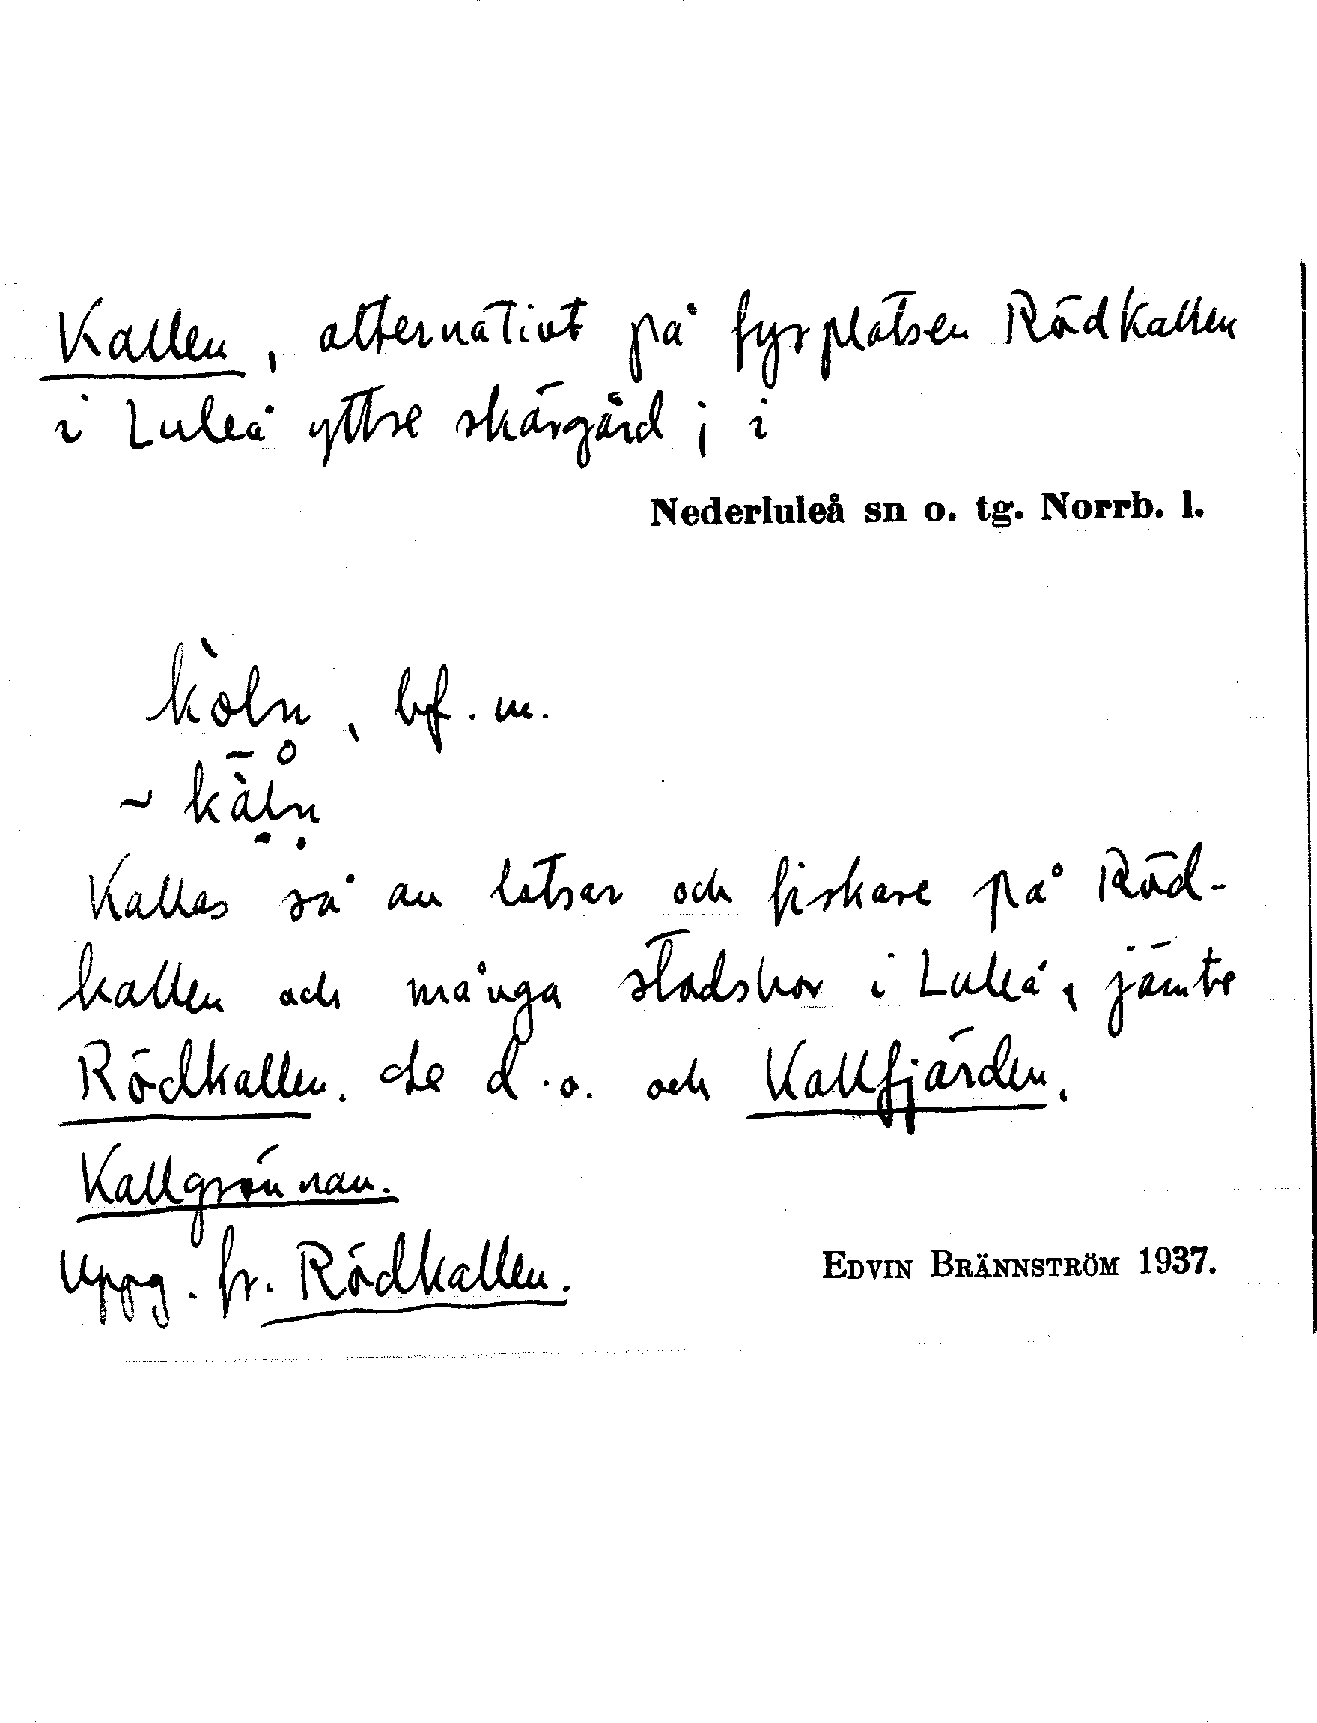 Kallen, alternativt på fyrplatsen Rödkallen
i Luleå yttre skärgård ; i
Nederluleå sn o. tg. Norrb. l.
bf. m.
Kallas så av lotsar och fiskare på Röd-
kallen och många stadsbor i Luleå, jämte
Rödkallen. Se d. o. och Kallfjärden,
Kallgrönnan.
Uppg. fr. Rödkallen.
EDVIN BRÄNNSTRÖM 1937.